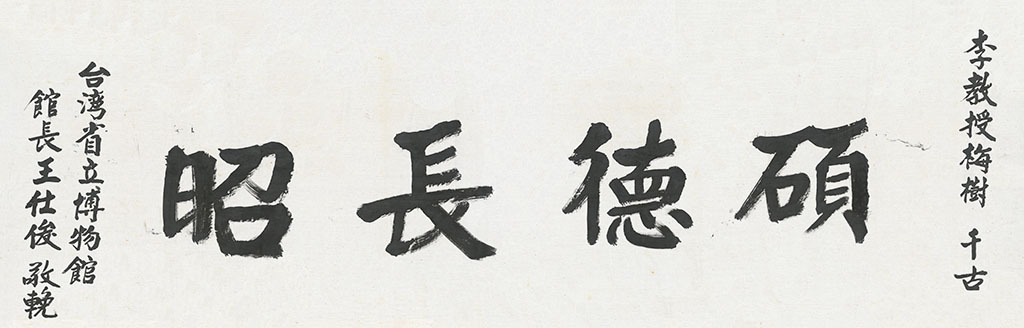 李教授梅樹 千古
碩德長昭
台湾省立博物館
館長王仕俊 敬輓